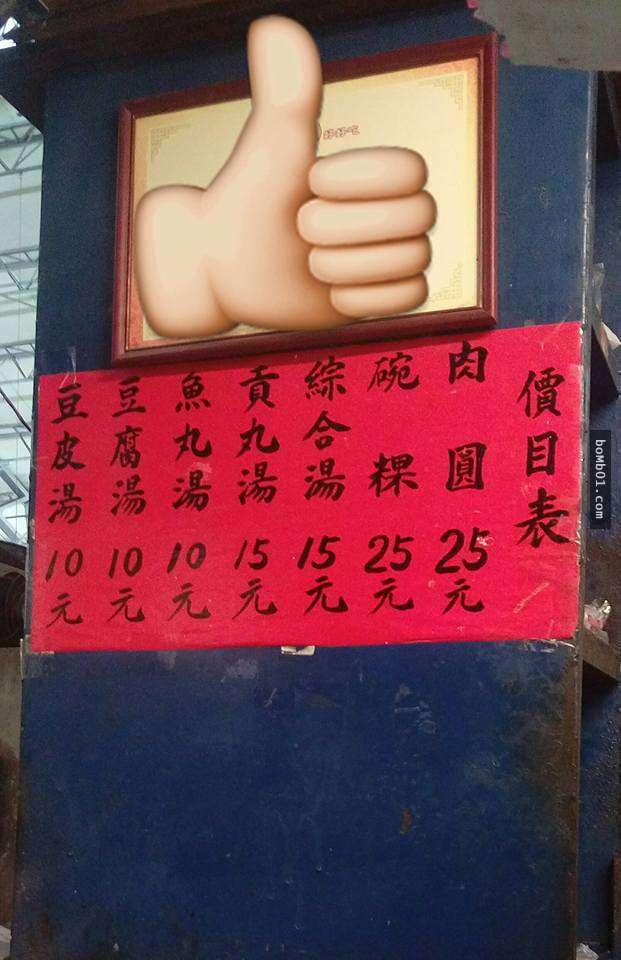 好好吃
價目表
肉圓25元
碗粿25元
綜合湯15元
貢丸湯15元
魚丸湯10元
豆腐湯10元
豆皮湯10元
boMb01.com